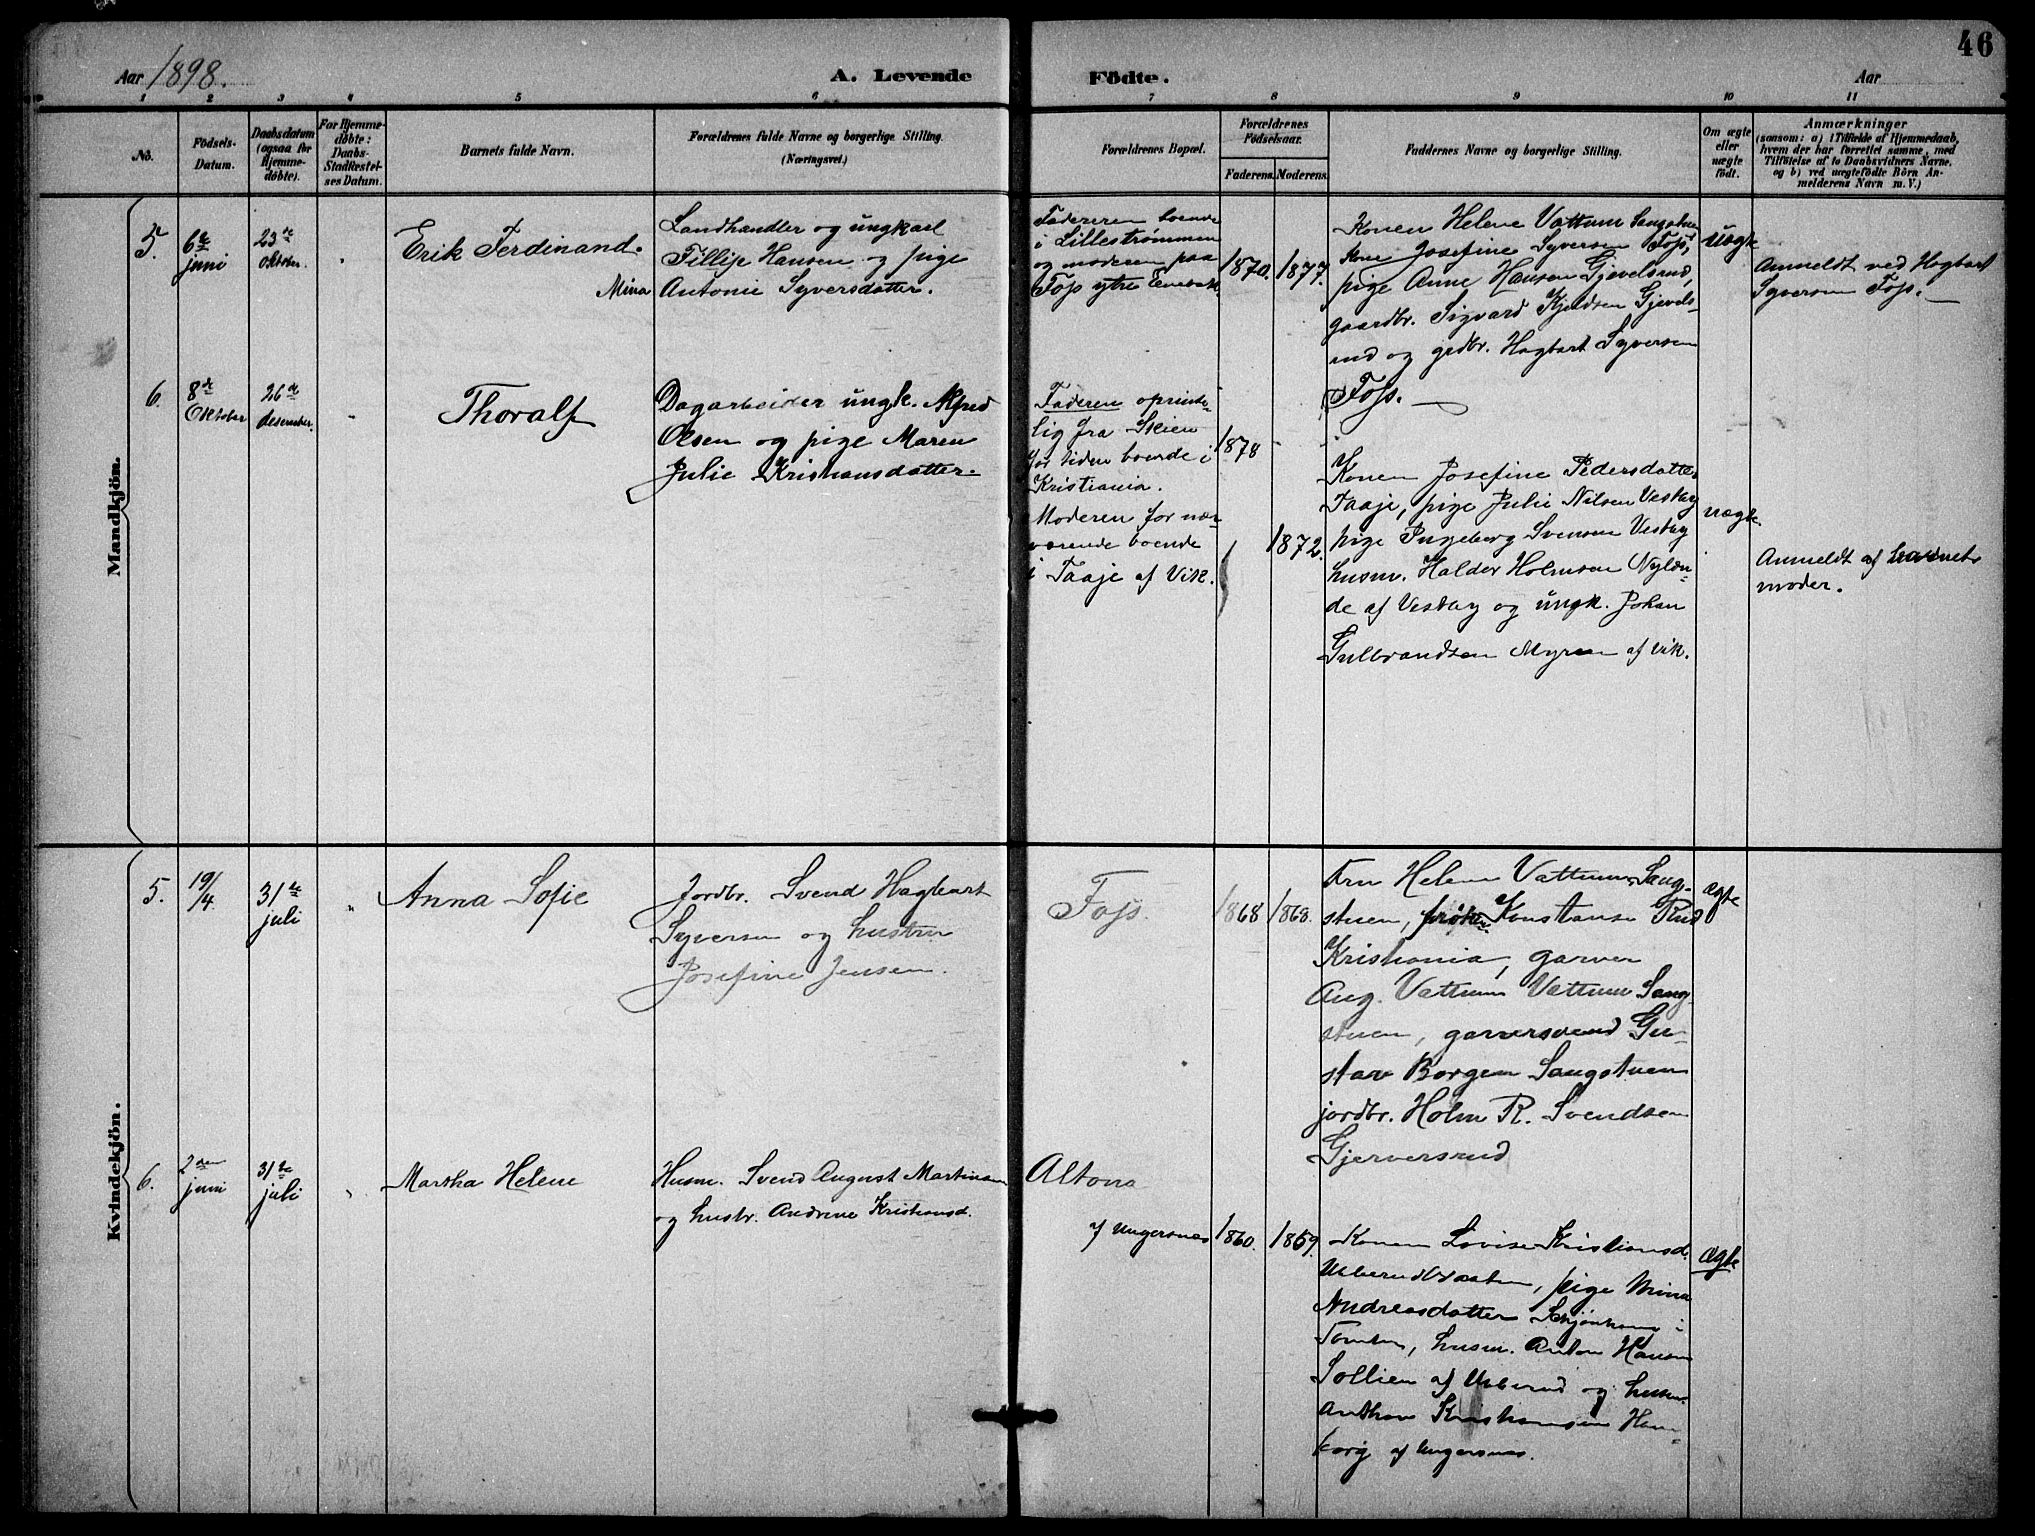 46
Aar 1898.
A. Levende Födte.
Aar
1 2 3 4 5 6 7 8 9 10 11
No.
Födsels-
Datum.
Daabsdatum
(ogsaa for
Hjemme-
döbte).
For Hjemme-
döbte:
Daabs-
Stadfæstel-
ses Datum.
Barnets fulde Navn.
Forældrenes fulde Navne og borgerlige Stilling.
(Næringsvei.)
Forældrenes Bopæl.
Forældrenes
Födselsaar.
Faderens. Moderens.
Faddernes Navne og borgerlige Stilling.
Om ægte
eller
uægte
födt.
Anmærkninger
(saasom: a) i Tilfælde af Hjemmedaab,
hvem der har forrettet samme, med
Tilföielse af to Daabsvidners Navne,
og b) ved uægtefödte Börn An-
melderens Navn m. V.)
Mandkjön.
5.
6te
juni
23de
oktober.
Erik Ferdinand.
Landhandler og ungkarl
Fillip Hansen og pige
Mina Antonie Syversdatter.
Faderen boende
i Lillestrømmen
og moderen paa
Fos ytre Enebak.
1870. 1877.
Konen Helene Vattum Sangstuen
kone Josefine Syversen Fos,
pige Anne Hansen Gjevelsrud,
gaardbr. Sigvard Kjeldsen Gjevels-
rud og grdbr. Hagbart Syversen
Fos.
uægte
Anmeldt ved Hagbart
Syversen Fos.
6.
8de
Oktober
26de
desember.
Thoralf
Dagarbeider ungk. Alfred
Olsen og pige Maren
Julie Kristiansdatter.
Faderen oprinde-
lig fra Skien
for tiden boende i
Kristiania.
Moderen for nær-
værende boende
i Taaje af Vik.
1878
1872.
Konen Josefine Pedersdatter
Taaje, pige Julie Nilsen Vestby
pige Ingeborg Svensen Vestby
husm. Haldor Holmsen Nylæn-
de af Vestby og ungk. Johan
Gulbrandsen Myren af Vik.
uægte.
Anmeldt af barnets
moder.
Kvindekjön.
5.
19/4.
31te
juli
Anna Sofie
Jordbr. Svend Hagbart
Syversen og hustru
Josefine Jensen.
Fos.
1868 1868.
Fru Helene Vattum Sang-
stuen, frøken Konstanse Rud
Kristiania, garver
Aug. Vattum Vattum Sang-
stuen, garversvend Gu-
stav Borgen Sangstuen
jordbr. Holm R. Svendsen
Gjerversrud
ægte
6.
2den
juni
31te
juli
Martha Helene
Husm. Svend August Martinsen
og hustr. Andrine Kristiansd.
Altona
af Ungersnes
1860. 1859.
Konen Lovise Kristiansd.
pige Mina
Andreasdatter
husm. Anton Hansen
Sollien af og husm.
Anthon Kristiansen Ham-
borg af Ungersnes.
ægte